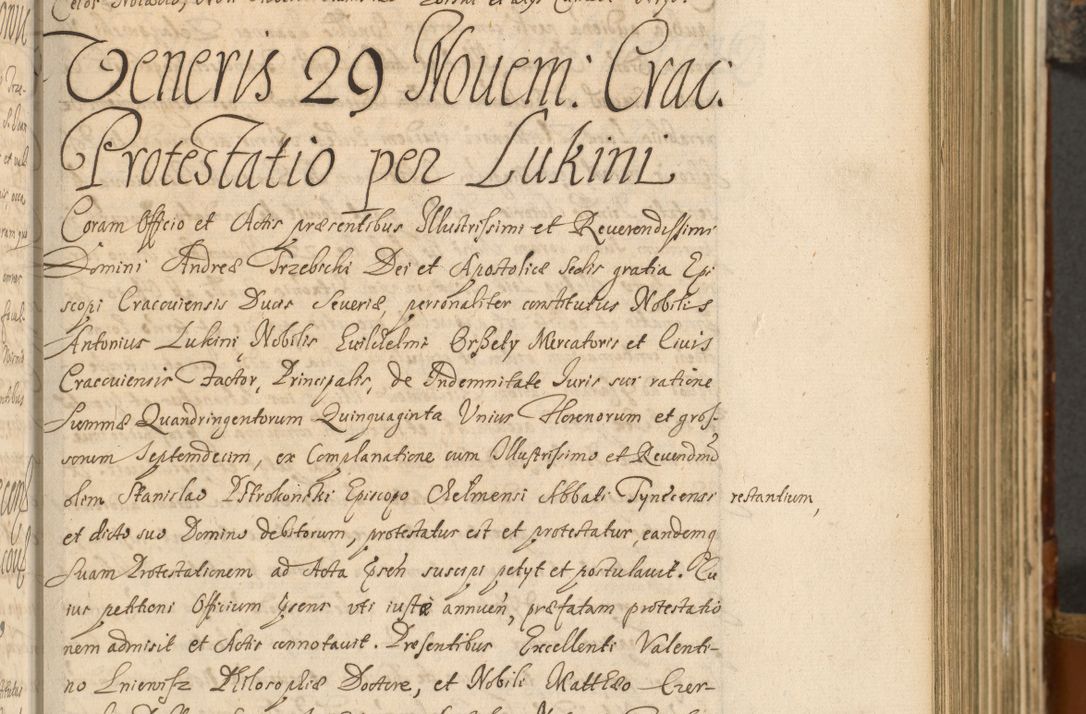 Veneris 29 Nouem: Crac:
Protestatio per Lukini
Coram Officio et Actis præsentibus Illustrissimi et Reuerendissimi
Domini Andreæ Trzebicki Dei et Apostolicæ Sedis gratia Epi
scopi Cracouiensis Ducis Seueriæ, personaliter constitutus Nobilis
Antonius Lukini Nobilis Guilhelmi Orßety Mercatoris et Ciuis
Cracouiensis Factor, Principalis, de Indemnitate Iuris sui ratione
Summæ Quandringentorum Quinquaginta Unius Florenorum et gros-
sorum Septemdecim, ex Complanatione cum Illustrissimo et Reuendmo
olem Stanislao Pstrokoński Episcopo Chelmensi Abbati Tynecensi restantium,
et dicto suo Domino debitorum, protestatus est et protestatur, eandemq
suam Protestationem ad Acta pseñ suscipi petyt et postulauit. Cu
ius petitioni Officium psens uti iustæ annueñ, præfatam protestatio
nem admisit et Actis connotauit. Presentibus Excellenti Valenti-
no Lniewisz Philosophiæ Doctore, et Nobili Matthæo Czer-